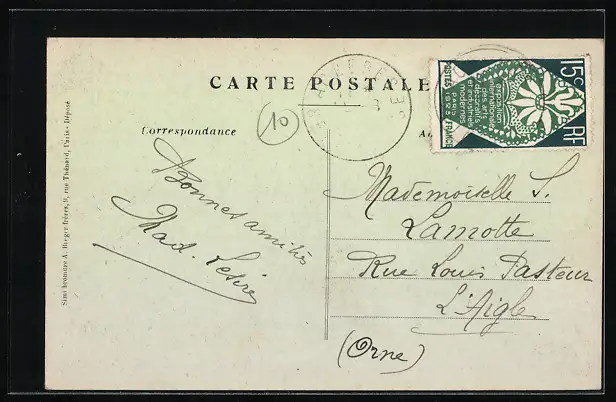 CARTE POSTALE
Correspondance
10
15c
exposition
internationale
des arts
décoratifs
et industriels
modernes
PARIS
1925
POSTES
FRANCE
RF
Bonnes amitiés
Mad.
Mademoiselle S.
Lamotte
Rue Louis Pasteur
L'Aigle
(Orne)
Simi bromure A. Breger frères, 9, rue Thénard, Paris - Déposé